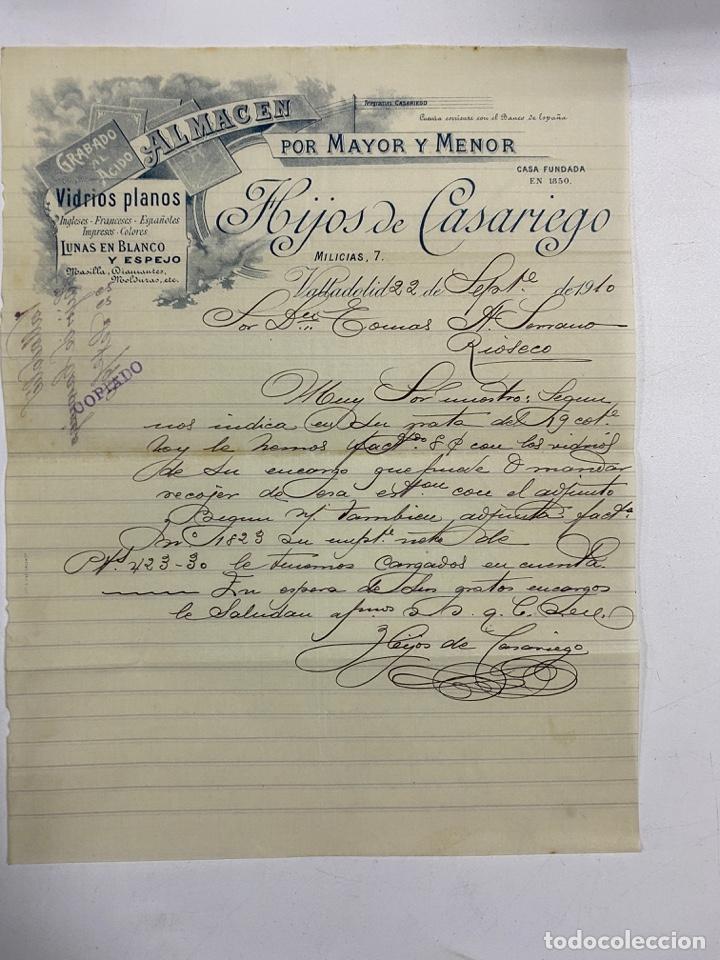 Telegramas CASARIEGO
Cuenta corriente con el Banco de España
ALMACEN
GRABADO AL ACIDO
POR MAYOR Y MENOR
CASA FUNDADA
EN 1850.
Vidrios planos
Ingleses - Franceses - Españoles
Impresos - Colores
LUNAS EN BLANCO
Y ESPEJO
Masilla, Diamantes,
Molduras, etc.
Hijos de Casariego
MILICIAS, 7.
Valladolid 22 de Septe de 1910
Sor Dn Tomas A. Serrano
Rioseco
COPIADO
Muy Sor nuestro: Segun
nos indica en su grata del 19 cote
hoy le hemos factdo 8 con los vidrios
de su encargo que puede V mandar
recojer de esa eston con el adjunto
y Segun n/ tambien adjunta facta
nº 1823 su impte neto de
Pts 423-30 le tenemos cargados en cuenta
En espera de sus gratos encargos
le Saludan afmos s. s. q. b. s. m.
Hijos de Casariego
todocoleccion
todocoleccion.net